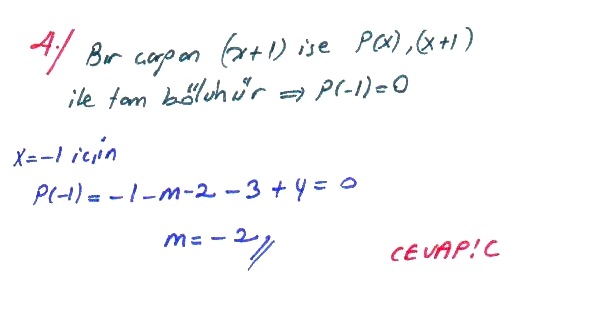 4./ Bir çarpan (x+1) ise P(x), (x+1)
ile tam bölünür ⇒ P(-1)=0
x=-1 için
P(-1) = -1-m-2-3+4=0
m=-2,,
CEVAP: C